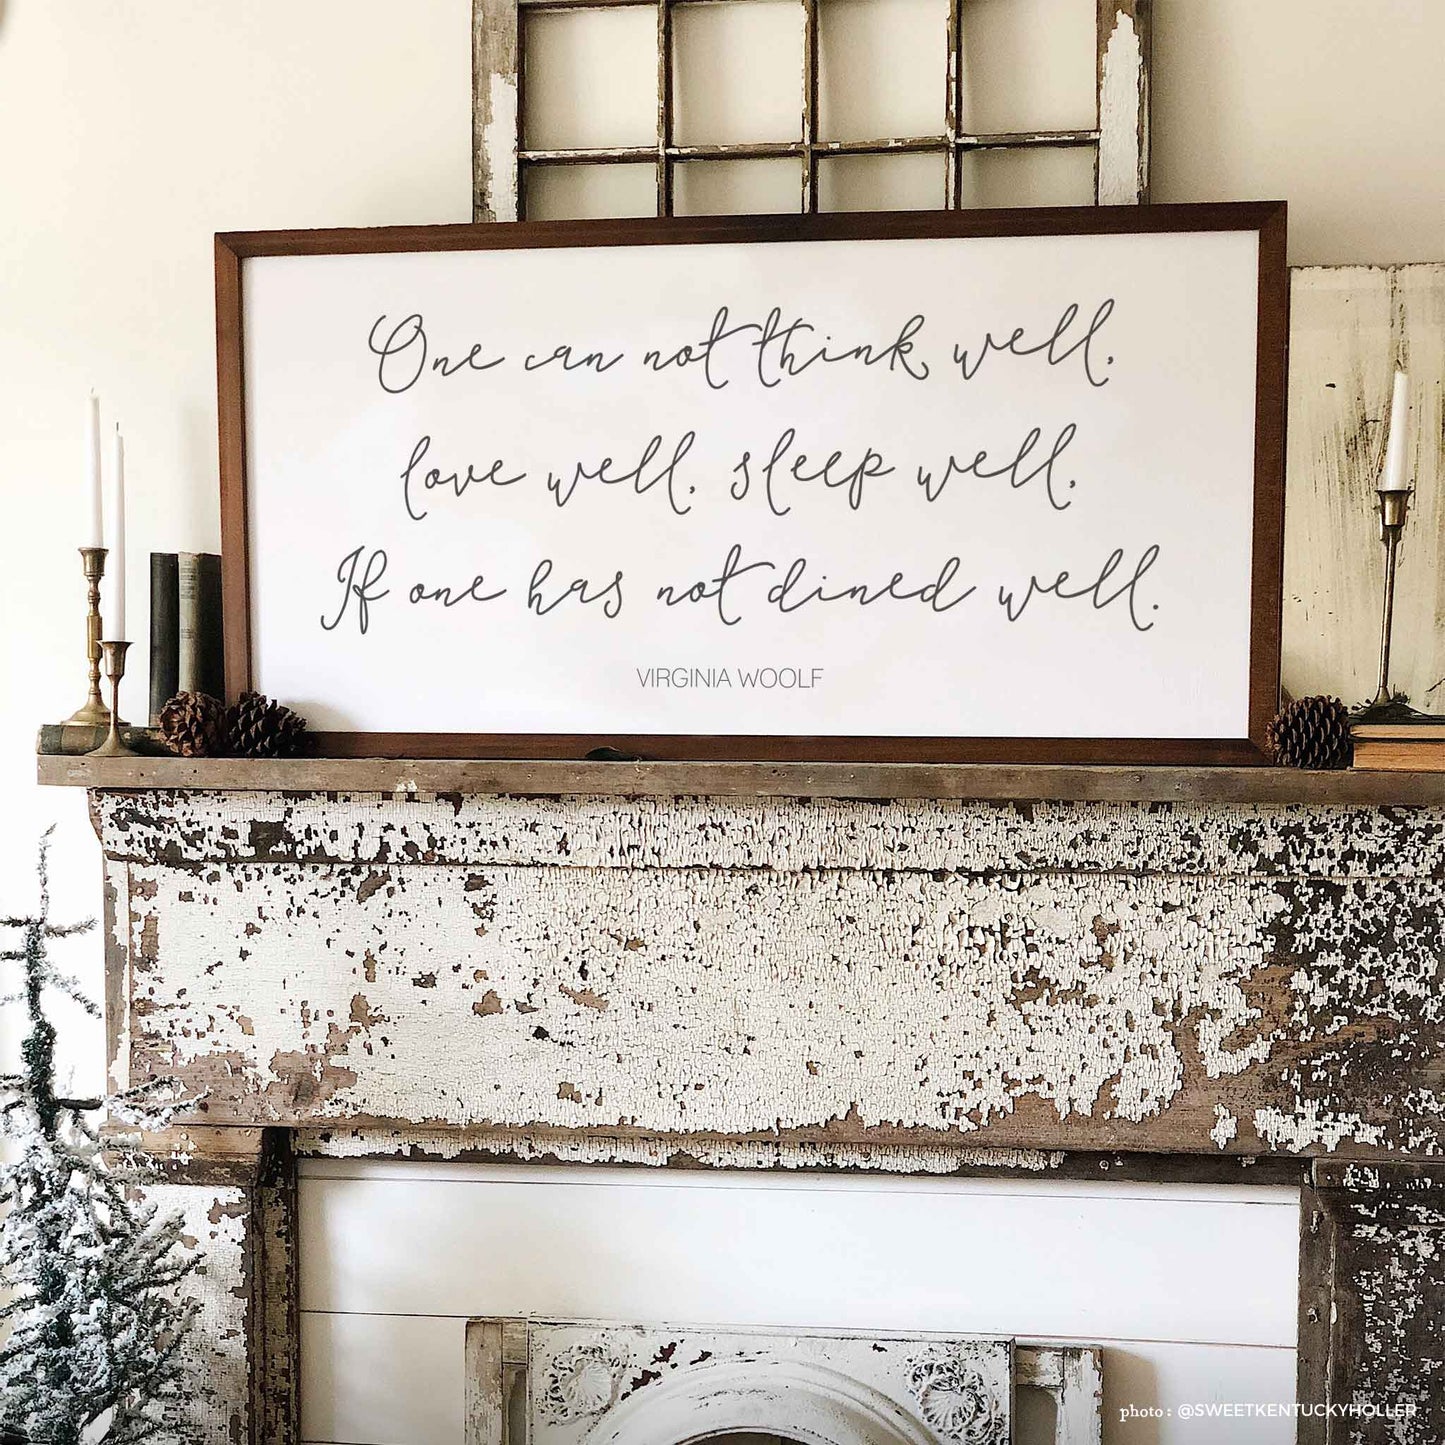 One can not think well,
love well, sleep well,
If one has not dined well.
VIRGINIA WOOLF
photo: @SWEETKENTUCKYHOLLER